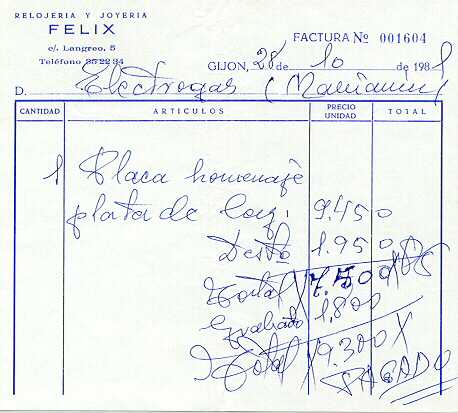 RELOJERIA Y JOYERIA
FELIX
c/. Langreo, 5
Teléfono 35 22 34
FACTURA Nº 001604
GIJON, 28 de 10 de 1981
D. Electrogas (Mauramin)
CANTIDAD ARTICULOS PRECIO UNIDAD TOTAL
1 Placa homenaje
plata de ley. 9.450
Desto 1.950
Total 7.500
Grabado 1,800
Total 9.300
PAGADO